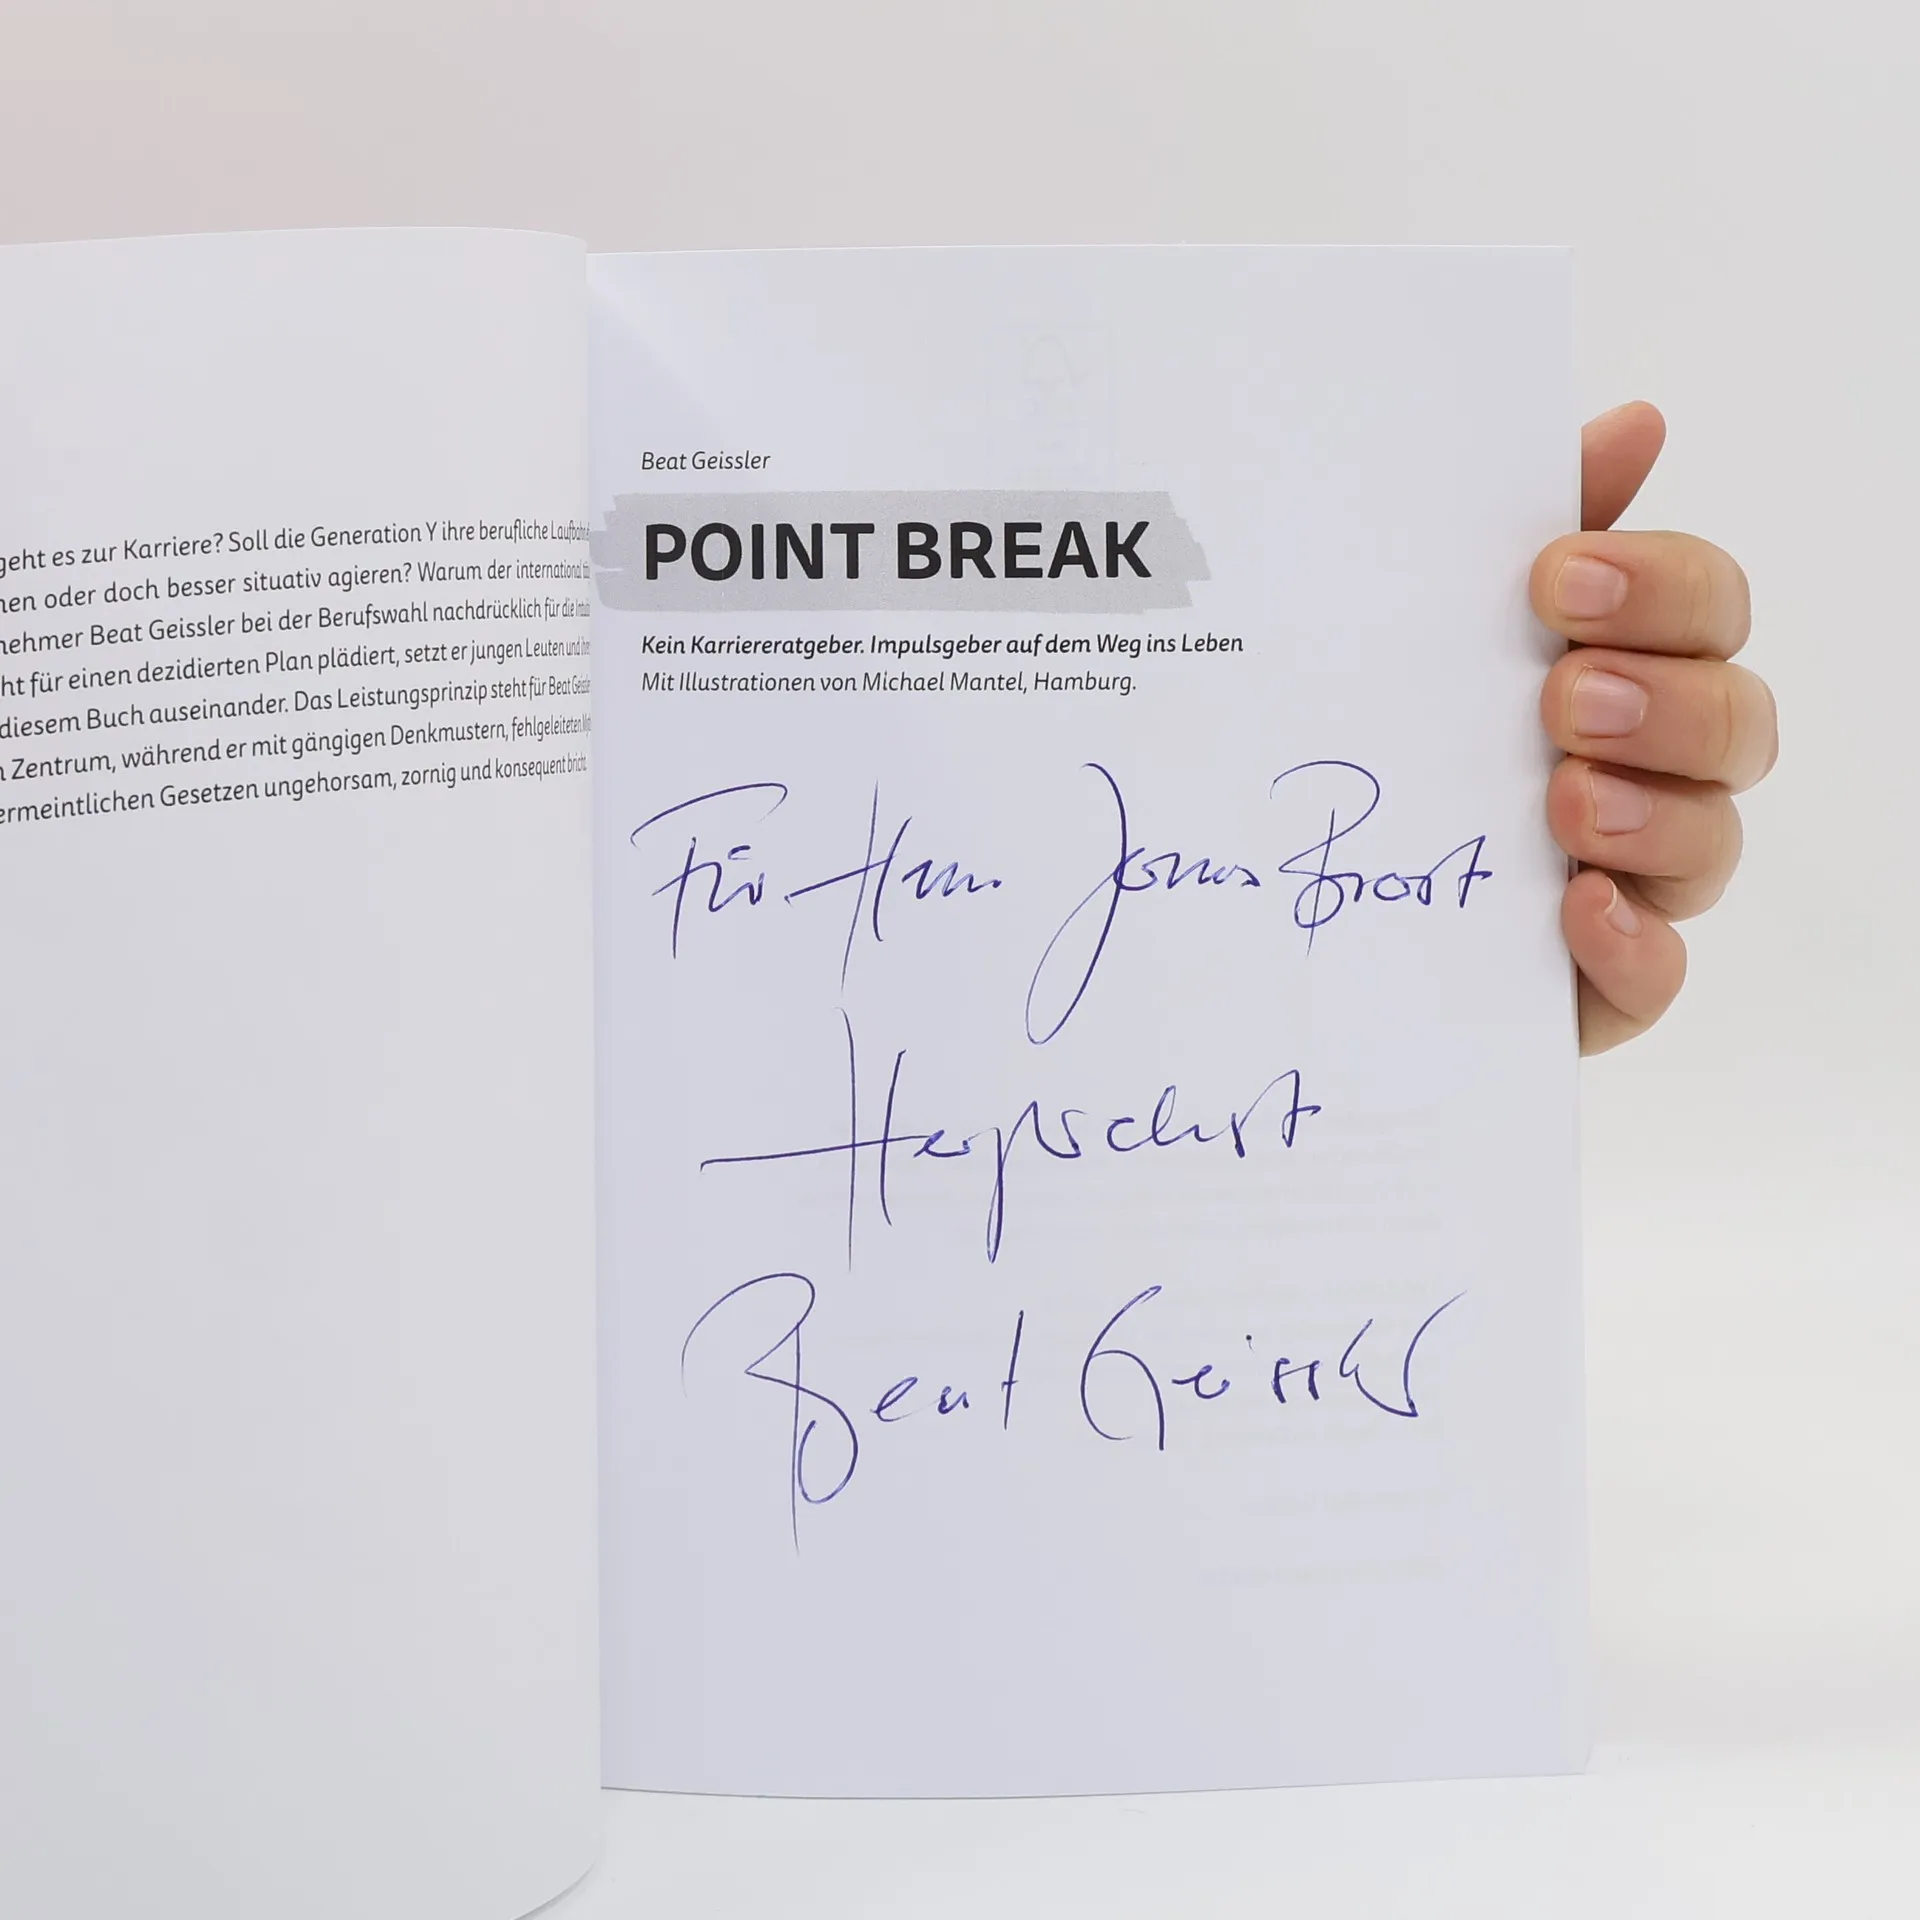 geht es zur Karriere? Soll die Generation Y ihre berufliche
oder doch besser situativ agieren? Warum der international
Beat Geissler bei der Berufswahl nachdrücklich für die
für einen dezidierten Plan plädiert, setzt er jungen Leuten und
diesem Buch auseinander. Das Leistungsprinzip steht für Beat
Zentrum, während er mit gängigen Denkmustern, fehlgeleiteten
ermeintlichen Gesetzen ungehorsam, zornig und konsequent bricht.
Beat Geissler
POINT BREAK
Kein Karriereratgeber. Impulsgeber auf dem Weg ins Leben
Mit Illustrationen von Michael Mantel, Hamburg.
Für Herrn Jonas Brost
Herzlichst
Beat Geissler